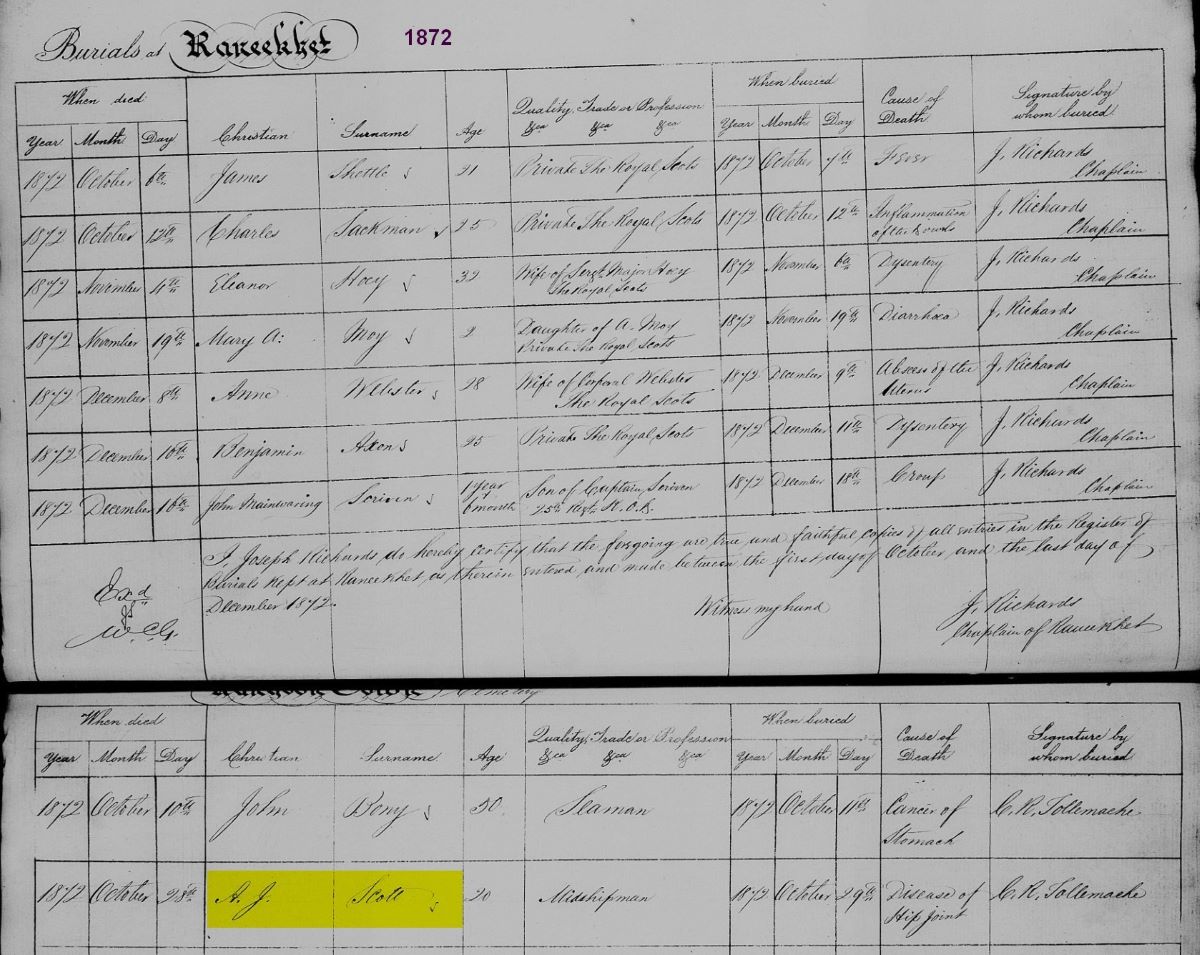 Burials at Raneekhet 1872
When died When buried
Year Month Day Christian Surname Age Quality, Trade or Profession &ca &ca &ca Year Month Day Cause of Death Signature by whom buried
1872 October 6th James Shettle 21 Private The Royal Scots 1872 October 7th Fever J. Richards Chaplain
1872 October 12th Charles Jackman 25 Private The Royal Scots 1872 October 12th Inflammation of the Bowels J. Richards Chaplain
1872 November 4th Eleanor Hoey 32 Wife of Sergt. Major Hoey The Royal Scots 1872 November 6th Dysentery J. Richards Chaplain
1872 November 19th Mary A: Moy 2 Daughter of A. Moy Private The Royal Scots 1872 November 19th Diarrhœa J. Richards Chaplain
1872 December 8th Anne Webster 28 Wife of Corporal Webster The Royal Scots 1872 December 9th Abscess of the Uterus J. Richards Chaplain
1872 December 10th Benjamin Axon 25 Private The Royal Scots 1872 December 11th Dysentery J. Richards Chaplain
1872 December 16th John Mainwaring Scriven 1 year 6 month Son of Captain Scriven 25th Regt. 1872 December 18th Croup J. Richards Chaplain
I, Joseph Richards do hereby certify that the foregoing are true and faithful copies of all entries in the Register of
Burials kept at Raneekhet, as therein entered and made between the first day of October and the last day of
December 1872.
Witness my hand
J. Richards
Chaplain of Raneekhet
Exd
Cemetery
When died When buried
Year Month Day Christian Surname Age Quality, Trade or Profession &ca &ca &ca Year Month Day Cause of Death Signature by whom buried
1872 October 10th John Bony 50 Seaman 1872 October 11th Cancer of Stomach C. R. Tollemache
1872 October 28th A. J. Scott 20 Midshipman 1872 October 29th Disease of Hip Joint C. R. Tollemache